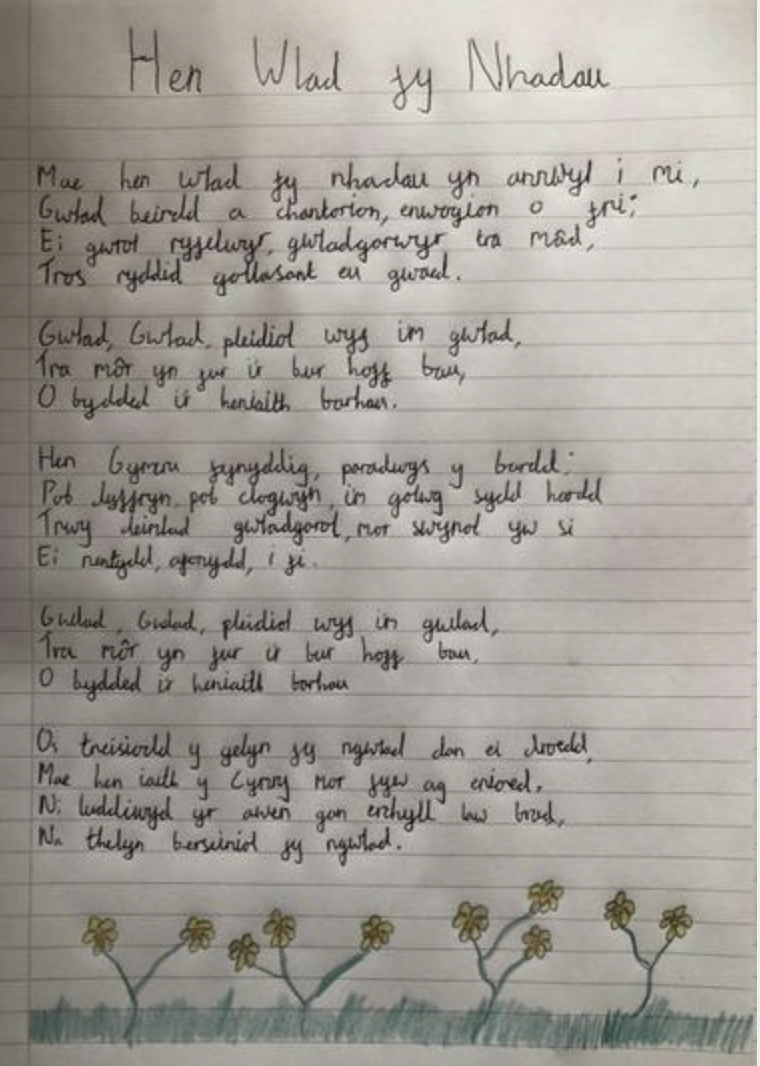 Hen Wlad fy Nhadau
Mae hen wlad fy nhadau yn annwyl i mi,
Gwlad beirdd a chantorion, enwogion o fri;
Ei gwrol ryfelwyr, gwladgarwyr tra mâd,
Tros ryddid gollasant eu gwaed.
Gwlad, Gwlad, pleidiol wyf i'm gwlad,
Tra môr yn fur i'r bur hoff bau,
O bydded i'r heniaith barhau.
Hen Gymru fynyddig, paradwys y bardd;
Pob dyffryn, pob clogwyn, i'm golwg sydd hardd
Trwy deimlad gwladgarol, mor swynol yw si
Ei nentydd, afonydd, i fi.
Gwlad, Gwlad, pleidiol wyf i'm gwlad,
Tra môr yn fur i'r bur hoff bau,
O bydded i'r heniaith barhau
Os treisiodd y gelyn fy ngwlad dan ei droed,
Mae hen iaith y Cymry mor fyw ag erioed,
Ni luddiwyd yr awen gan erchyll law brad,
Na thelyn berseiniol fy ngwlad.